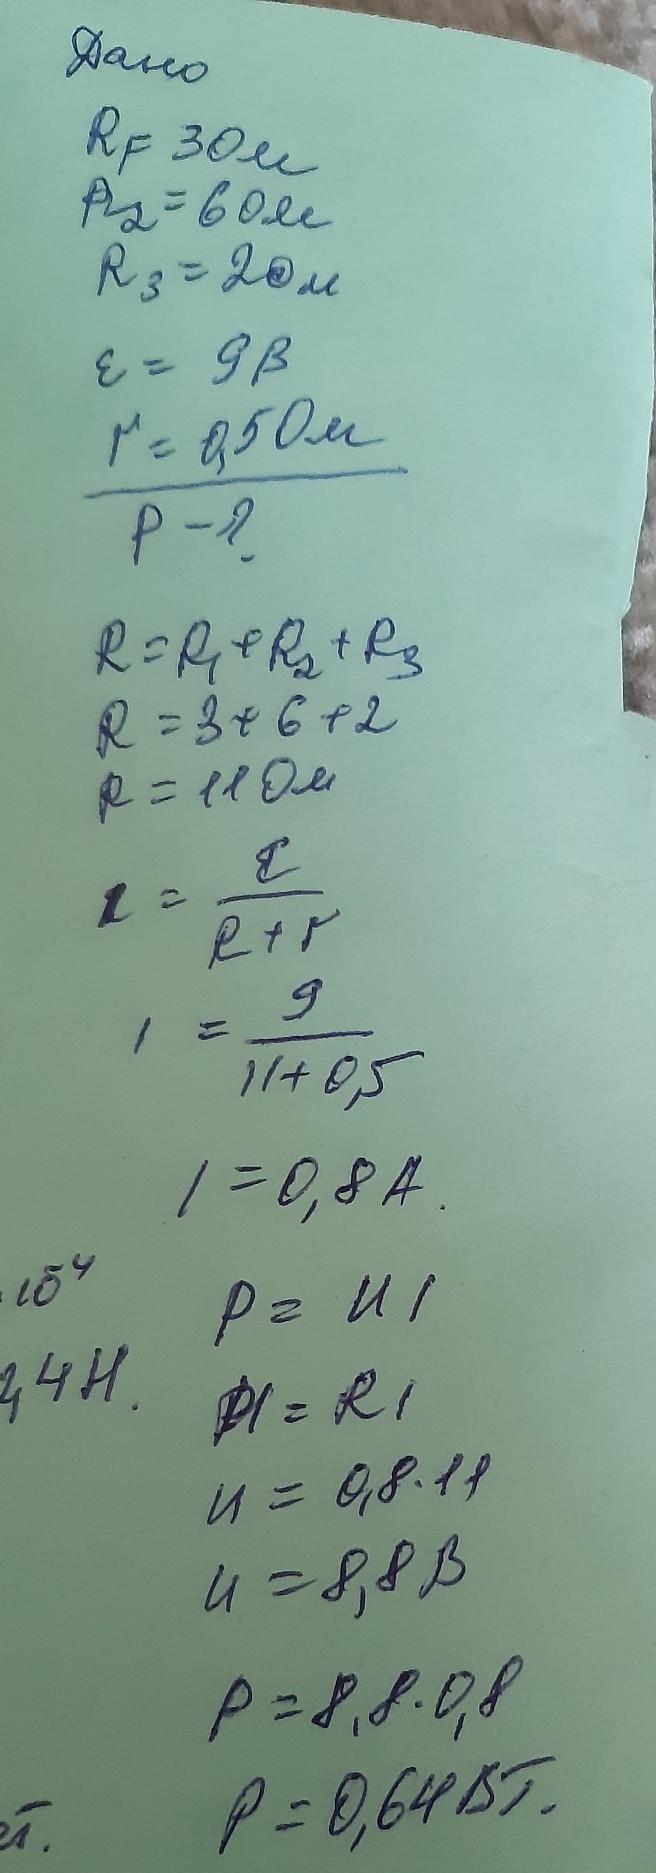 Дано
R₁= 3 Ом
R₂= 6 Ом
R₃ = 2 Ом
ε = 9В
r = 0,5 Ом
P - ?
R = R₁ + R₂ + R₃
R = 3 + 6 + 2
R = 11 Ом
I = ε / (R + r)
I = 9 / (11 + 0,5)
I = 0,8 А.
10⁴
P = U I
,4Н.
U = R I
U = 0,8 · 11
U = 8,8 В
P = 8,8 · 0,8
P = 0,64 Вт.